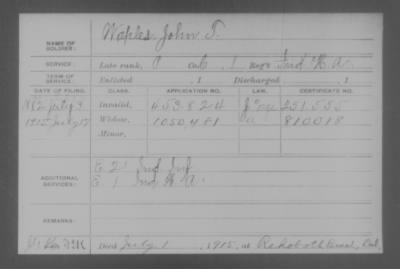 NAME OF SOLDIER: Waples, John T.
SERVICE: Late rank, P Co. 1 Reg't Ind H. A.
TERM OF SERVICE: Enlisted , 1 Discharged , 1
DATE OF FILING. CLASS. APPLICATION NO. LAW. CERTIFICATE NO.
July 9 Invalid, 453824 251555
1915 July 17 Widow, 1050481 810018
Minor,
ADDITIONAL SERVICES: E 2 Ind Inf
E 1 Ind H. A.
REMARKS:
Died July 1, 1915, at Rehoboth Del.